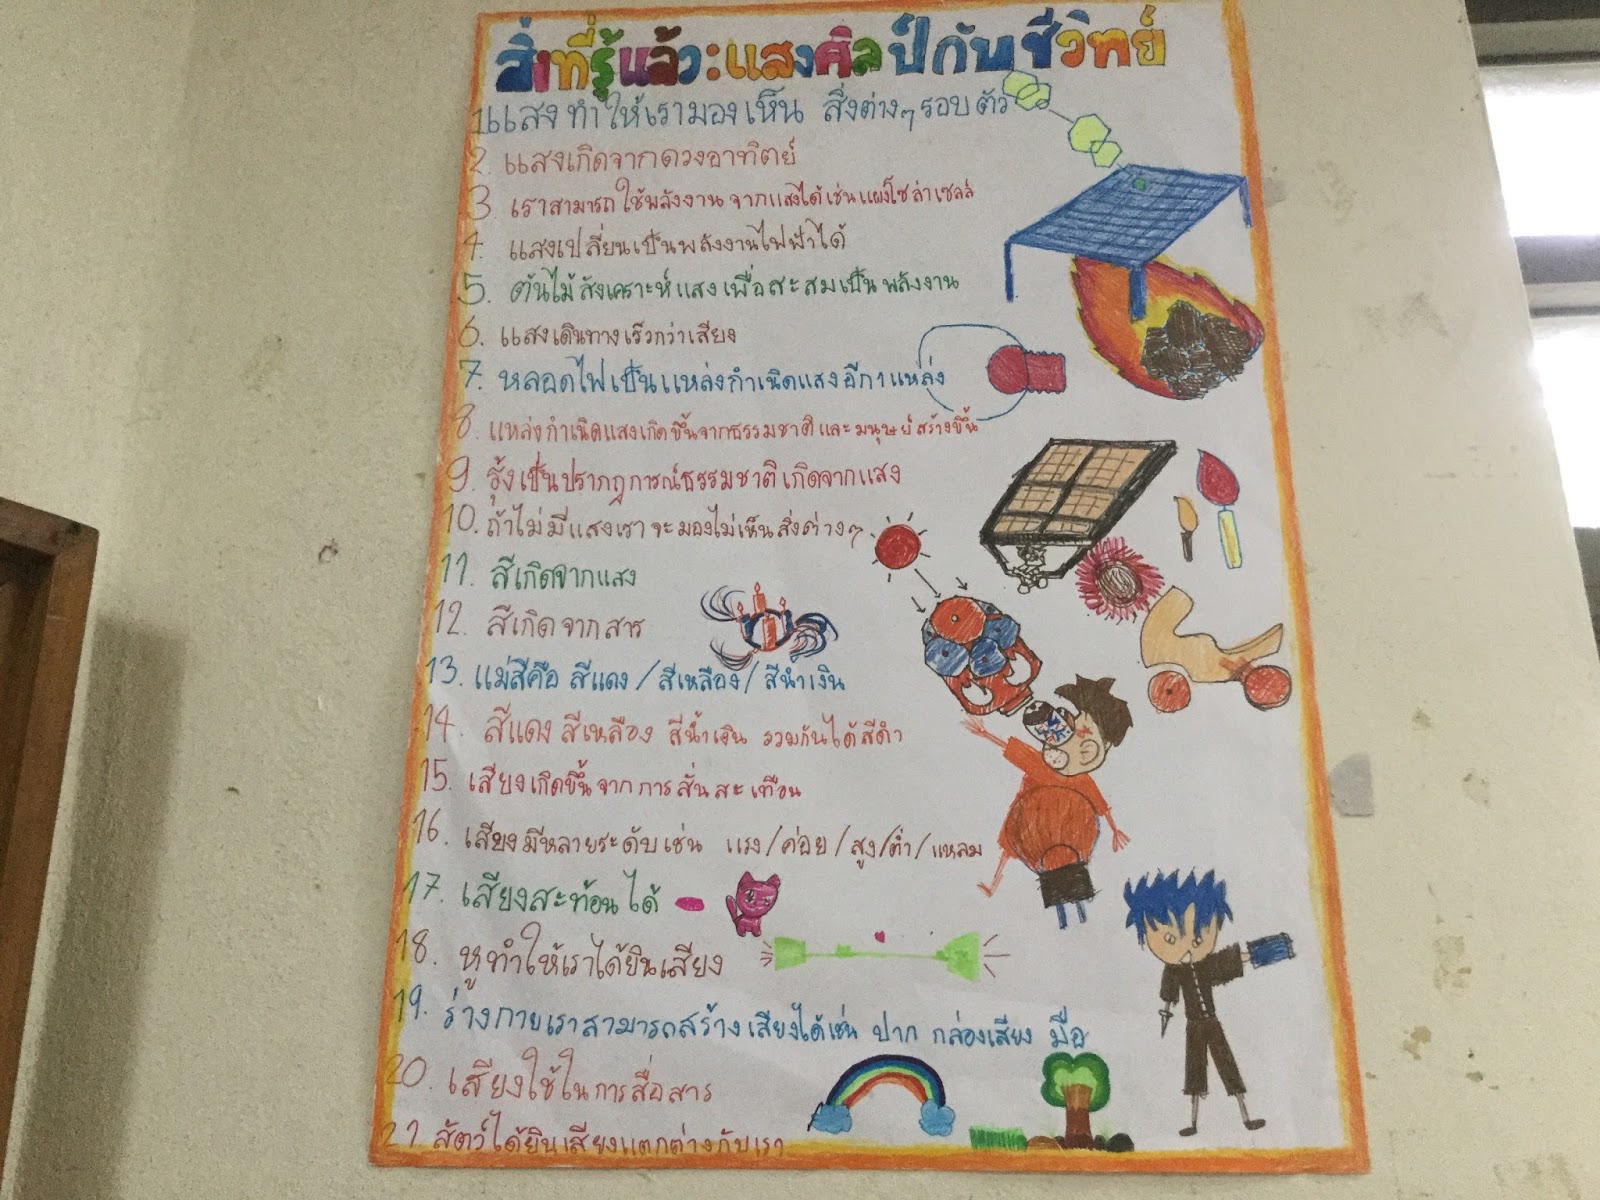 สิ่งที่รู้แล้ว:แสงศิลป์กับชีวิทย์
1.แสงทำให้เรามองเห็น สิ่งต่างๆรอบตัว
2. แสงเกิดจากดวงอาทิตย์
3. เราสามารถใช้พลังงานจากแสงได้เช่นแผงโซล่าเซลล์
4. แสงเปลี่ยนเป็นพลังงานไฟฟ้าได้
5. ต้นไม้สังเคราะห์แสงเพื่อสะสมเป็นพลังงาน
6. แสงเดินทางเร็วกว่าเสียง
7. หลอดไฟเป็นแหล่งกำเนิดแสงอีกแหล่ง
8. แหล่งกำเนิดแสงเกิดขึ้นจากธรรมชาติและมนุษย์สร้างขึ้น
9. รุ้งเป็นปรากฎการณ์ธรรมชาติเกิดจากแสง
10. ถ้าไม่มีแสงเราจะมองไม่เห็นสิ่งต่างๆ
11. สีเกิดจากแสง
12. สีเกิดจากสาร
13. แม่สีคือ สีแดง/สีเหลือง/สีน้ำเงิน
14. สีแดง สีเหลือง สีน้ำเงิน รวมกันได้สีดำ
15. เสียงเกิดขึ้นจากการสั่นสะเทือน
16. เสียงมีหลายระดับเช่น แรง/ค่อย/สูง/ต่ำ/แหลม
17. เสียงสะท้อนได้
18. หูทำให้เราได้ยินเสียง
19. ร่างกายเราสามารถสร้างเสียงได้เช่น ปาก กล่องเสียง มือ
20. เสียงใช้ในการสื่อสาร
21. สัตว์ได้ยินเสียงแตกต่างกับเรา